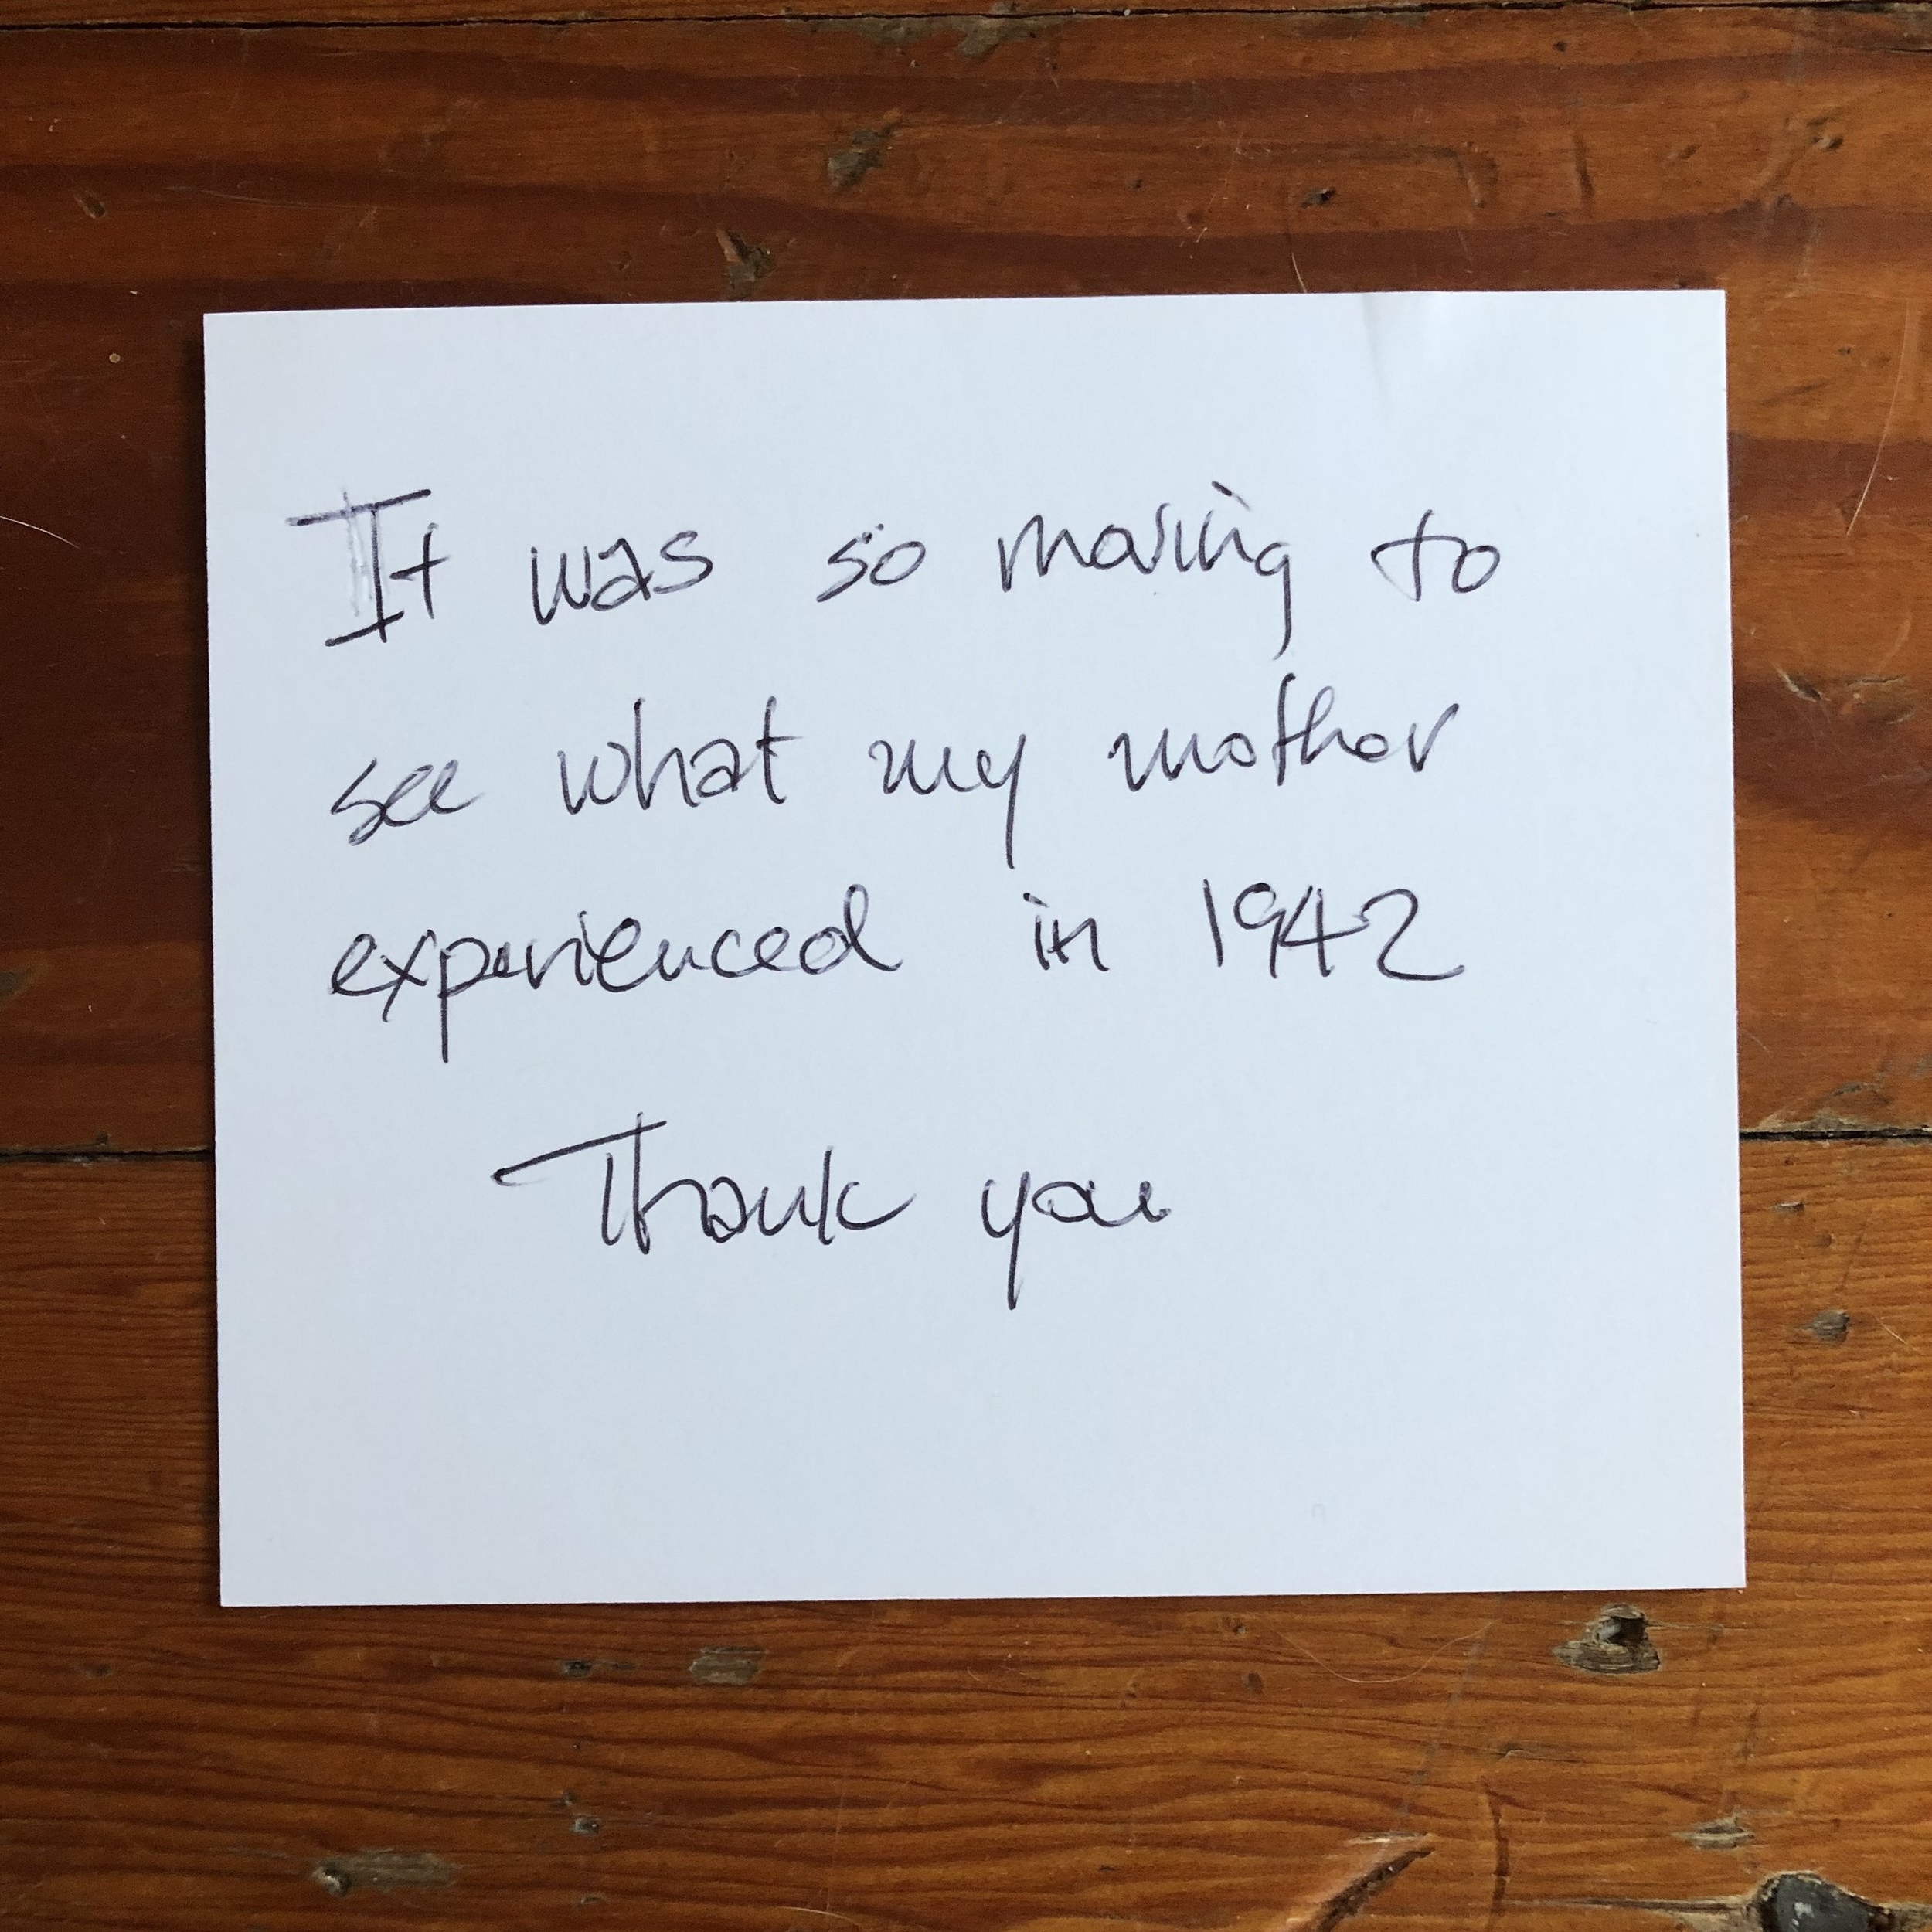 It was so moving to
see what my mother
experienced in 1942
Thank you